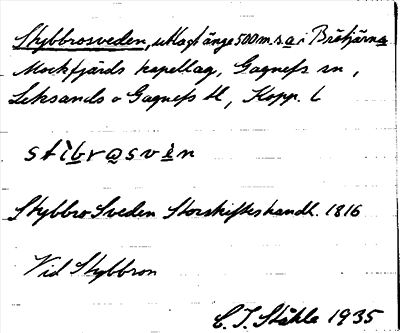 Stybbrosveden, utlagt änge 500 m. s. a. i Bråtjärna
Mockfjärds kapellag, Gagnefs sn,
Leksands o Gagnefs tl, Kopp. l
stibrọsvèn
Stybbro Sveden Storskifteshandl. 1816
Vid Stybbron
C. I. Ståhle 1935